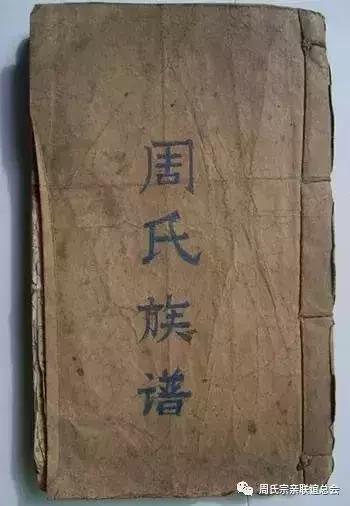 周氏族谱
周氏宗亲联谊总会